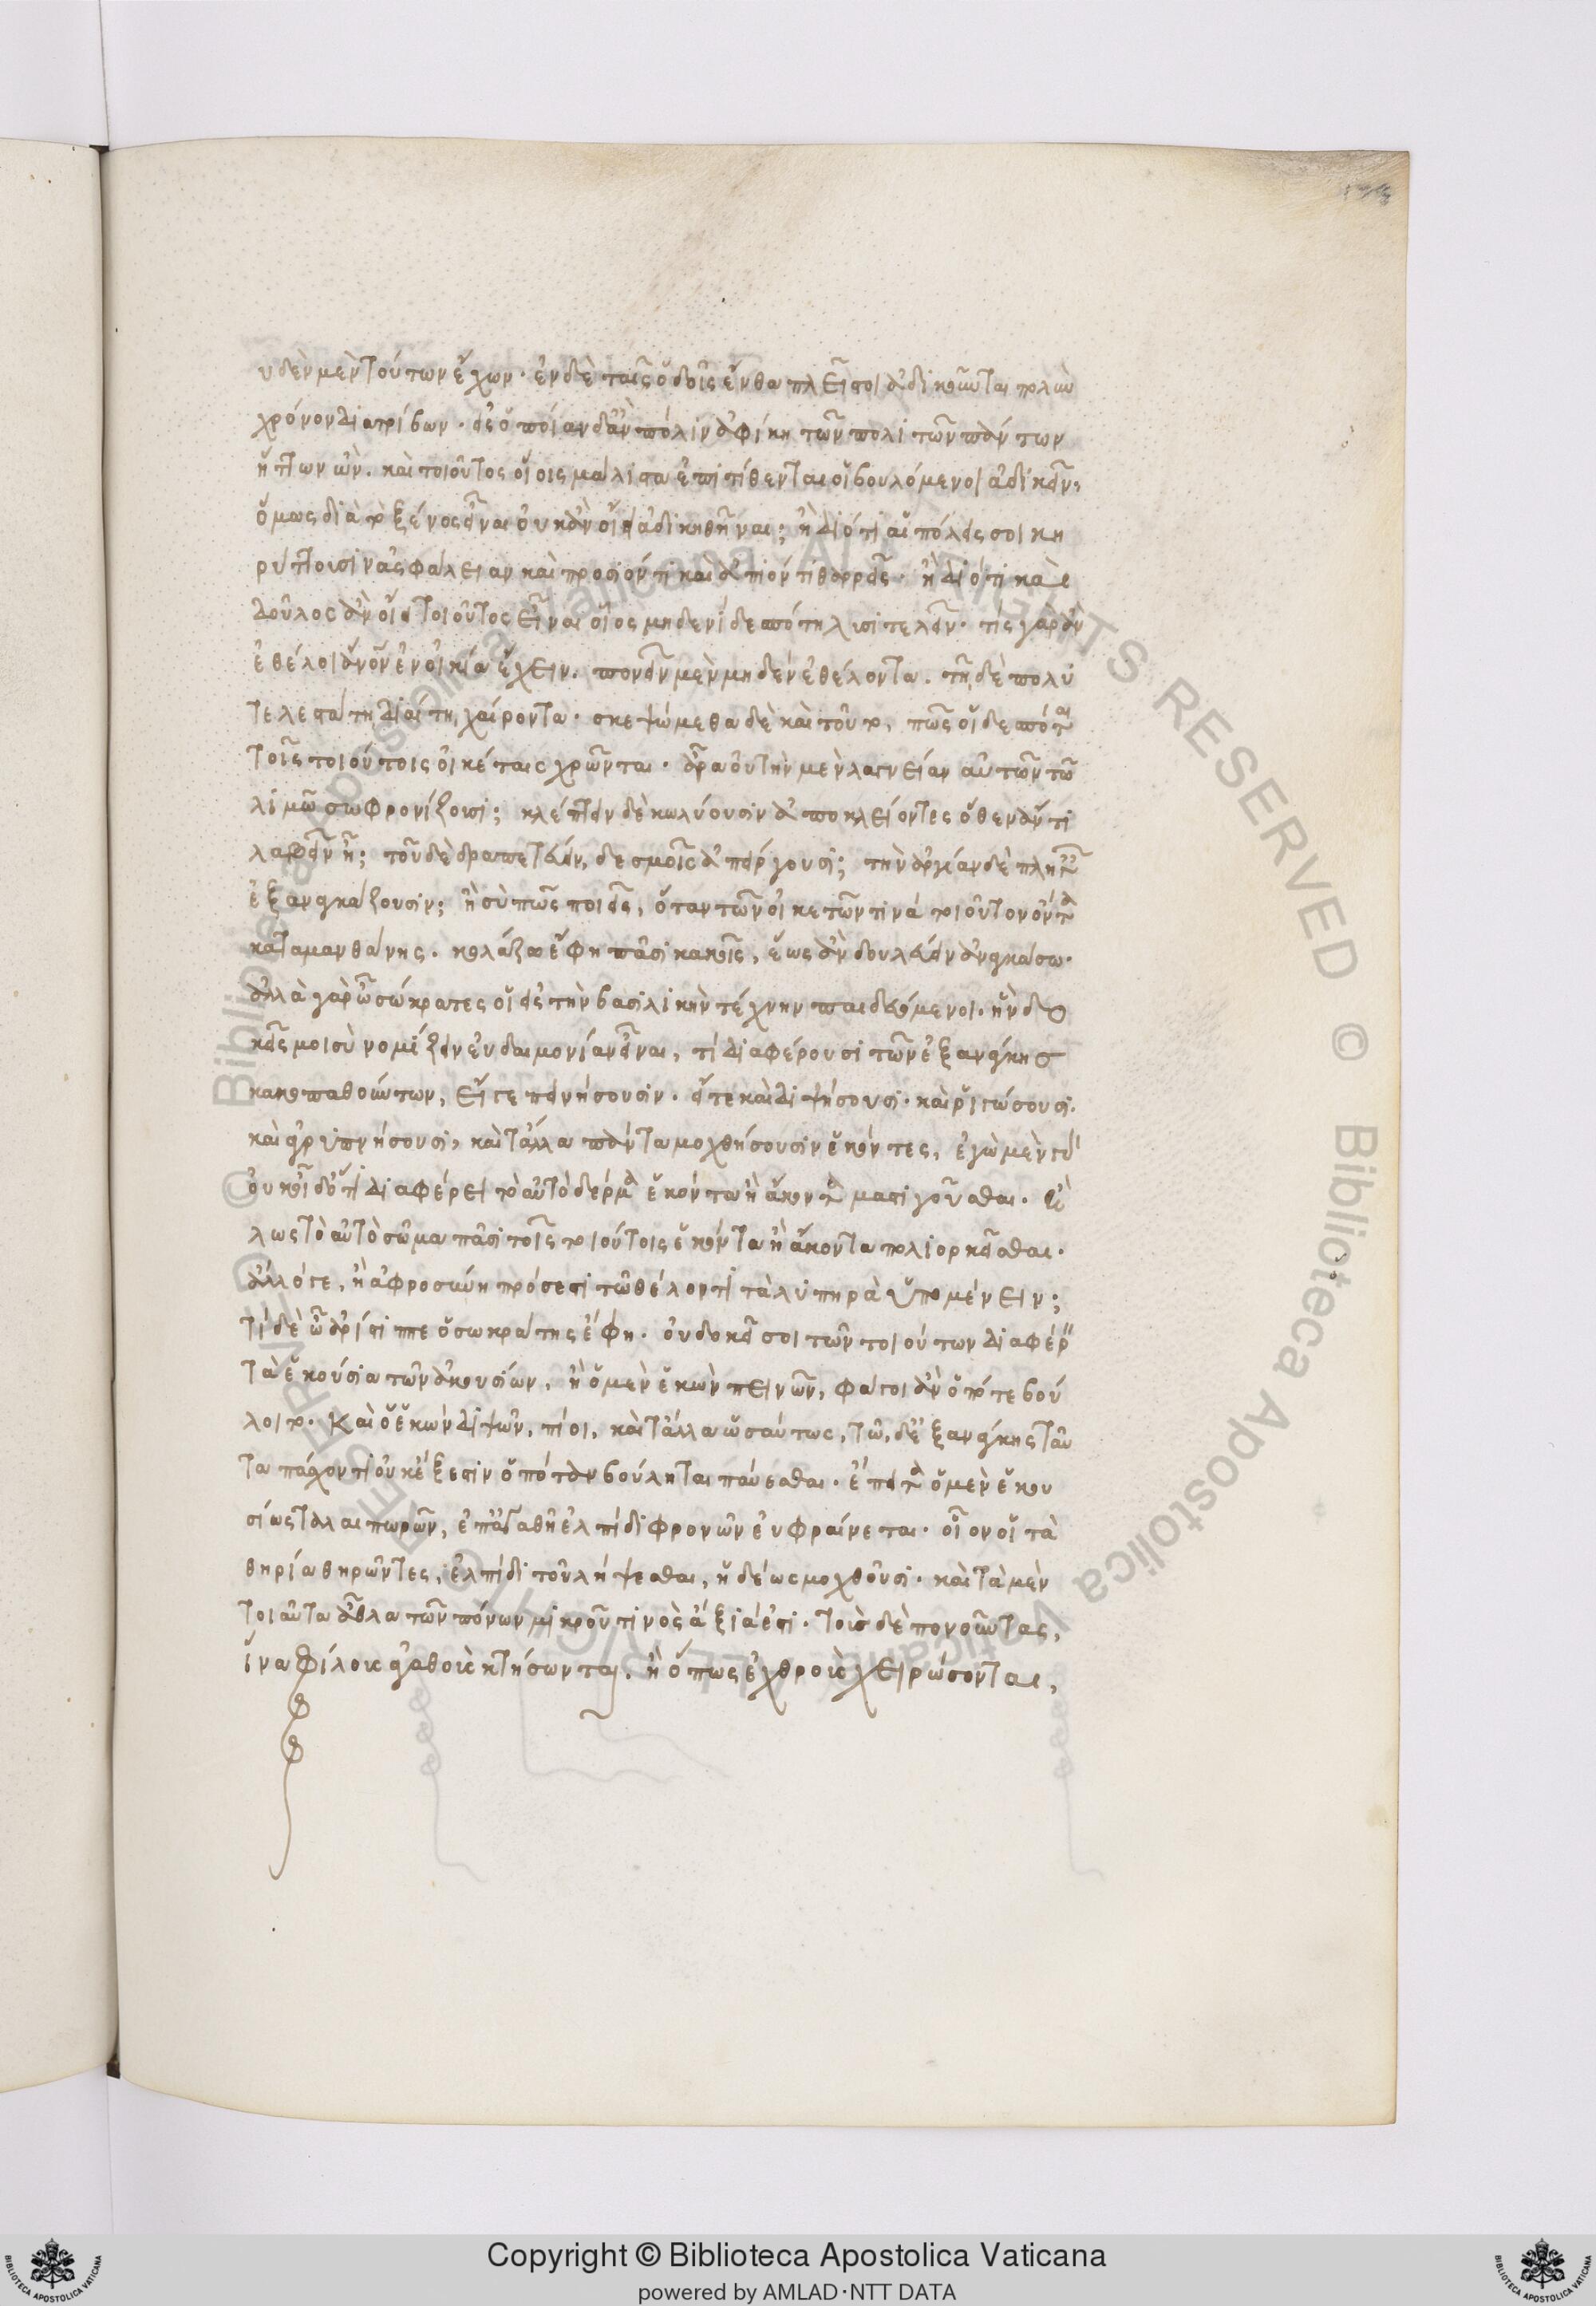 υδὲν μὲν τούτων ἔχων· ἐν δὲ ταῖς ὁδοῖς ἔνθα πλεῖστοι ἀδικοῦνται πολὺν
χρόνον διατρίβων· εἰς ὁποίαν δ' ἂν πόλιν ἀφίκῃ τῶν πολιτῶν πάντων
ἥττων ὢν. καὶ τοιοῦτος οἵοις μάλιστα ἐπιτίθενται οἱ βουλόμενοι ἀδικεῖν,
ὅμως διὰ τὸ ξένος εἶναι οὐκ ἂν οἴει ἀδικηθῆναι; ἢ διότι αἱ πόλεις σοι κη
ρύττουσιν ἀσφάλειαν καὶ προσιόντι καὶ ἀπιόντι θαρρεῖς· ἢ διότι καὶ
δοῦλος ἂν οἴει τοιοῦτος εἶναι οἷος μηδενὶ δεσπότῃ λυσιτελεῖν· τίς γὰρ ἂν
ἐθέλοι ἄνον ἐν οἰκίᾳ ἔχειν. πονεῖν μὲν μηδὲν ἐθέλοντα. τῇ δὲ πολυ
τελεστάτῃ διαίτῃ χαίροντα· σκεψώμεθα δὲ καὶ τοῦτο, πῶς οἱ δεσπόται
τοῖς τοιούτοις οἰκέταις χρῶνται· ἆρα οὐ τὴν μὲν λαγνείαν αὐτῶν τῷ
λιμῷ σωφρονίζουσι; κλέπτειν δὲ κωλύουσιν ἀποκλείοντες ὅθεν ἄν τι
λαβεῖν ᾖ; τοῦ δὲ δραπετεύειν, δεσμοῖς ἀπείργουσι; τὴν ἀργίαν δὲ πληγαῖς
ἐξαναγκάζουσιν; ἢ σὺ πῶς ποιεῖς, ὅταν τῶν οἰκετῶν τινὰ τοιοῦτον ὄντα
καταμανθάνῃς. κολάζω ἔφη πᾶσι κακοῖς, ἕως ἂν δουλεύειν ἀναγκάσω·
ἀλλὰ γὰρ ὦ σώκρατες οἱ εἰς τὴν βασιλικὴν τέχνην παιδευόμενοι. ἣν δο
κεῖς μοι σὺ νομίζειν εὐδαιμονίαν εἶναι, τί διαφέρουσι τῶν ἐξ ανάγκης
κακοπαθούντων, εἴ γε πεινήσουσιν. εἴτε καὶ διψήσουσι. καὶ ῥιγώσουσι.
καὶ ἀγρυπνήσουσι, καὶ τἄλλα πάντα μοχθήσουσιν ἑκόντες, ἐγὼ μὲν γὰρ
οὐκ οἶδ' ὅτι διαφέρει τὸ αὐτὸ δέρμα ἑκόντα ἢ ἄκοντα μαστιγοῦσθαι. ἢ ὅ
λως τὸ αὐτὸ σῶμα πᾶσι τοῖς τοιούτοις ἑκόντα ἢ ἄκοντα πολιορκεῖσθαι.
ἄλλό γε, ἢ ἀφροσύνη πρόσεστι τῷ θέλοντι τὰ λυπηρὰ ὑπομένειν;
τί δὲ ὦ ἀρίστιππε ὁ σωκράτης ἔφη. οὐ δοκεῖ σοι τῶν τοιούτων διαφέρειν
τὰ ἑκούσια τῶν ἀκουσίων, ἢ ὁ μὲν ἑκὼν πεινῶν, φάγοι ἂν ὁπότε βού
λοιτο. Καὶ ὁ ἑκὼν διψῶν, πίοι, καὶ τἄλλα ὡσαύτως, τῷ δ' ἐξ ανάγκης ταῦ
τα πάσχοντι οὐκ ἔξεστιν ὁπόταν βούληται παύεσθαι. ἔπειτα ὁ μὲν ἑκου
σίως ταλαιπωρῶν, ἐπ' ἀγαθῇ ἐλπίδι φρονῶν εὐφραίνεται· οἷον οἱ τὰ
θηρία θηρῶντες, ἐλπίδι τοῦ λήψεσθαι, ἡδέως μοχθοῦσι. καὶ τὰ μὲν
τοιαῦτα ἆθλα τῶν πόνων μικροῦ τινὸς ἄξιά ἐστι. τοὺς δὲ πονοῦντας,
ἵνα φίλους ἀγαθοὺς κτήσωνται, ἢ ὅπως ἐχθροὺς χειρώσονται,
Copyright © Biblioteca Apostolica Vaticana
powered by AMLAD·NTT DATA